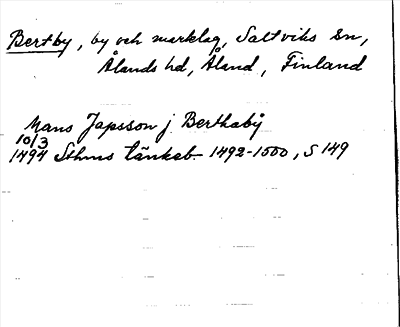 Bertby, by och marklag, Saltviks sn,
Ålands hd, Åland, Finland
Mans Japsson j Berthaby
10/3
1494 Sthms tänkeb. 1492-1500, S 149